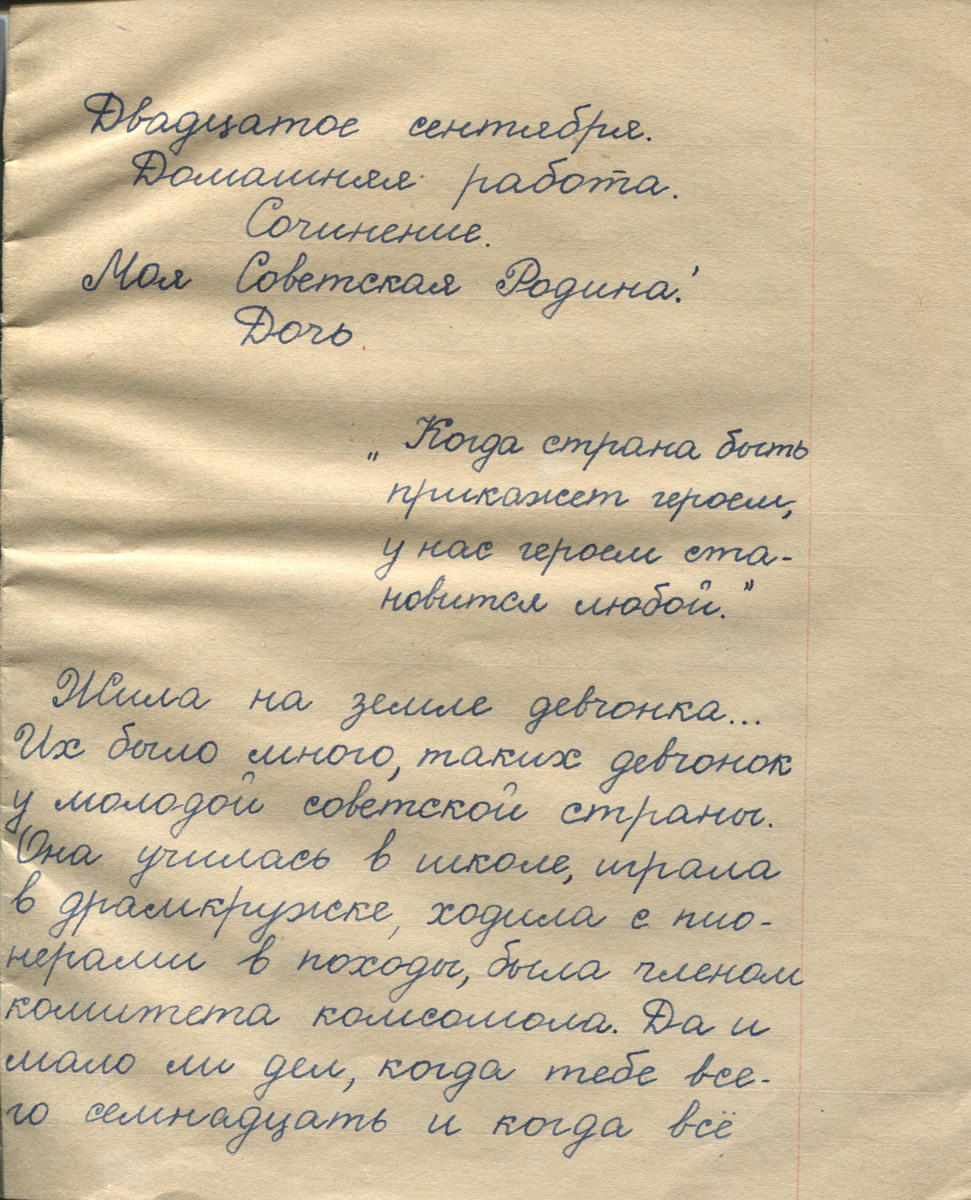 Двадцатое сентября.
Домашняя работа.
Сочинение.
Моя Советская Родина!
Дочь
„Когда страна быть
прикажет героем,
у нас героем ста-
новится любой."
Жила на земле девчонка...
Их было много, таких девчонок
у молодой советской страны.
Она училась в школе, играла
в драмкружке, ходила с пио-
нерами в походы, была членом
комитета комсомола. Да и
мало ли дел, когда тебе все-
го семнадцать и когда всё